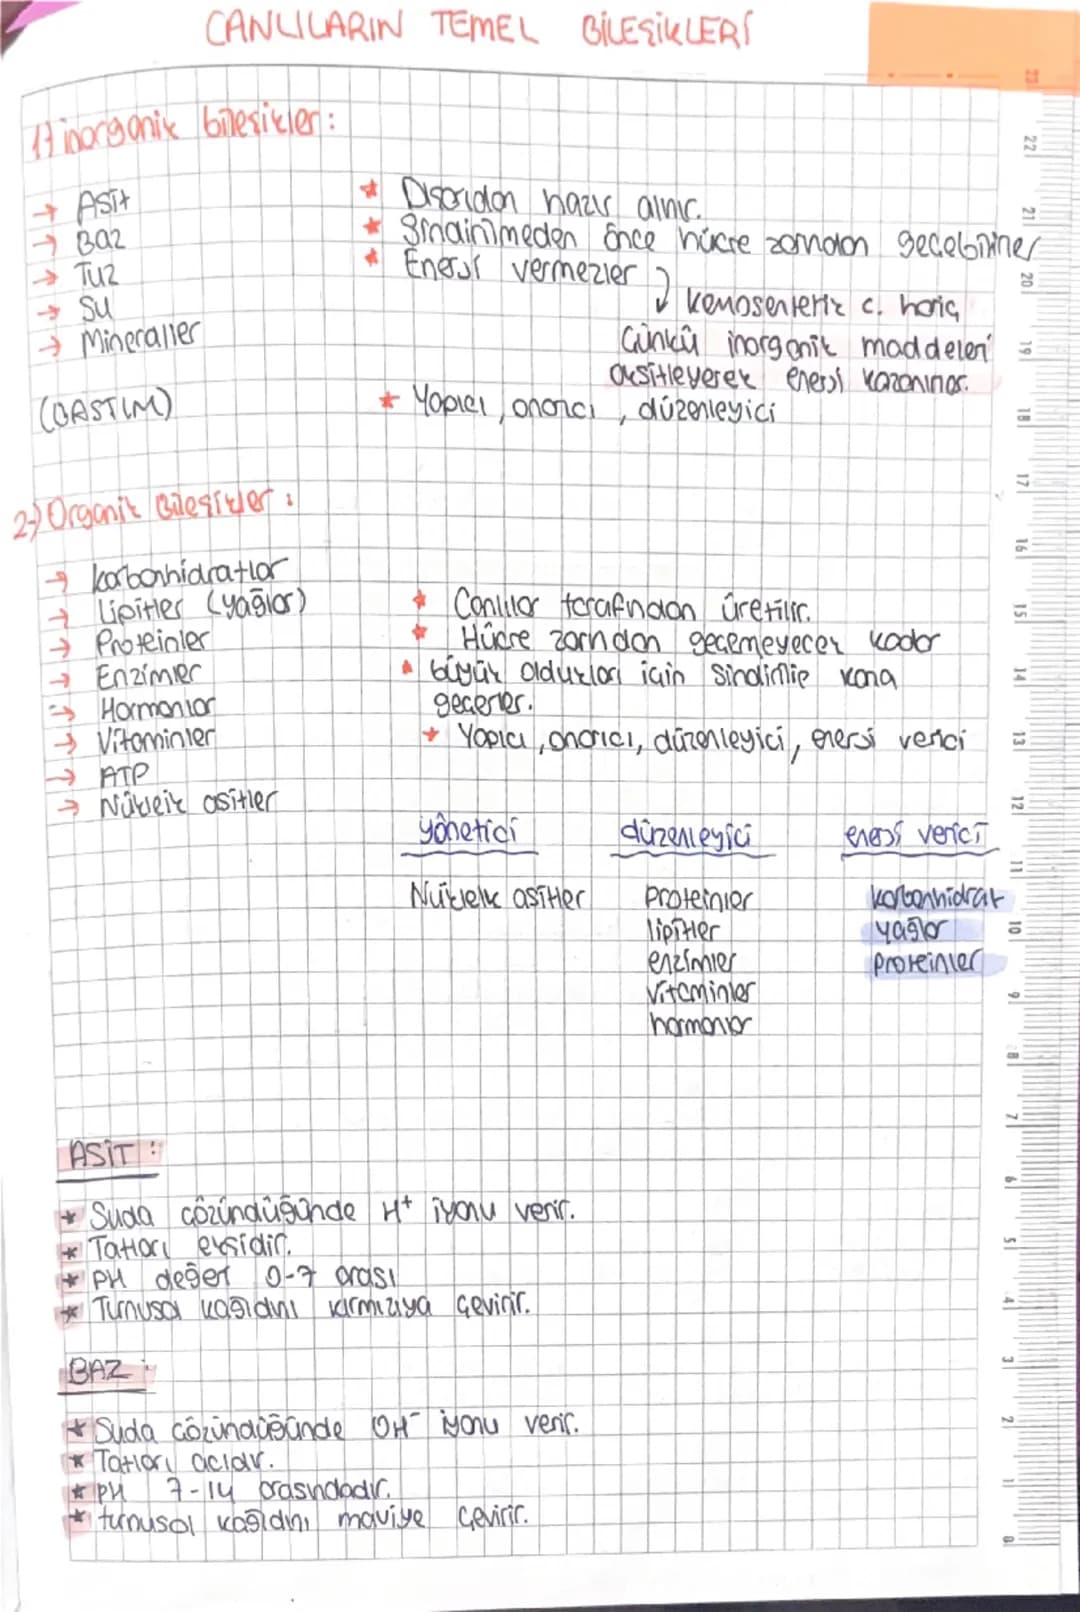 CANLILARIN TEMEL BİLEŞİKLERİ
1) inorganik bileşikler:
→ Asit
→ Baz
→ Tuz
→ Su
→ Mineraller
* Dışarıdan hazır alınır.
* Sindirilmeden önce hücre zarından geçebilirler
* Enerji vermezler
↓ kemosentetik c. hariç
Çünkü inorganik maddeleri
oksitleyerek enerji kazanırlar.
* Yapıcı, onarıcı, düzenleyici
2-) Organik Bileşikler:
→ karbonhidratlar
→ Lipitler (yağlar)
→ Proteinler
→ Enzimler
→ Hormonlar
→ Vitaminler
→ ATP
→ Nükleik asitler
* Canlılar tarafından üretilir.
* Hücre zarından geçemeyecek kadar
* büyük oldukları için sindirilip kana
geçerler.
* Yapıcı, onarıcı, düzenleyici, enerji verici
yönetici düzenleyici enerji verici
Nükleik asitler
proteinler
lipitler
enzimler
vitaminler
hormonlar
karbonhidrat
yağlar
proteinler
ASİT:
* Suda çözündüğünde H+ iyonu verir.
* Tatları ekşidir.
* PH değeri 0-7 arası
* Turnusol kağıdını kırmızıya çevirir.
BAZ:
* Suda çözündüğünde OH- iyonu verir.
* Tatları acıdır.
* PH 7-14 arasındadır.
* turnusol kağıdını maviye çevirir.
23
22
21
20
19
18
17
16
15
14
13
12
11
10
9
8
7
6
5
4
3
2
1
0